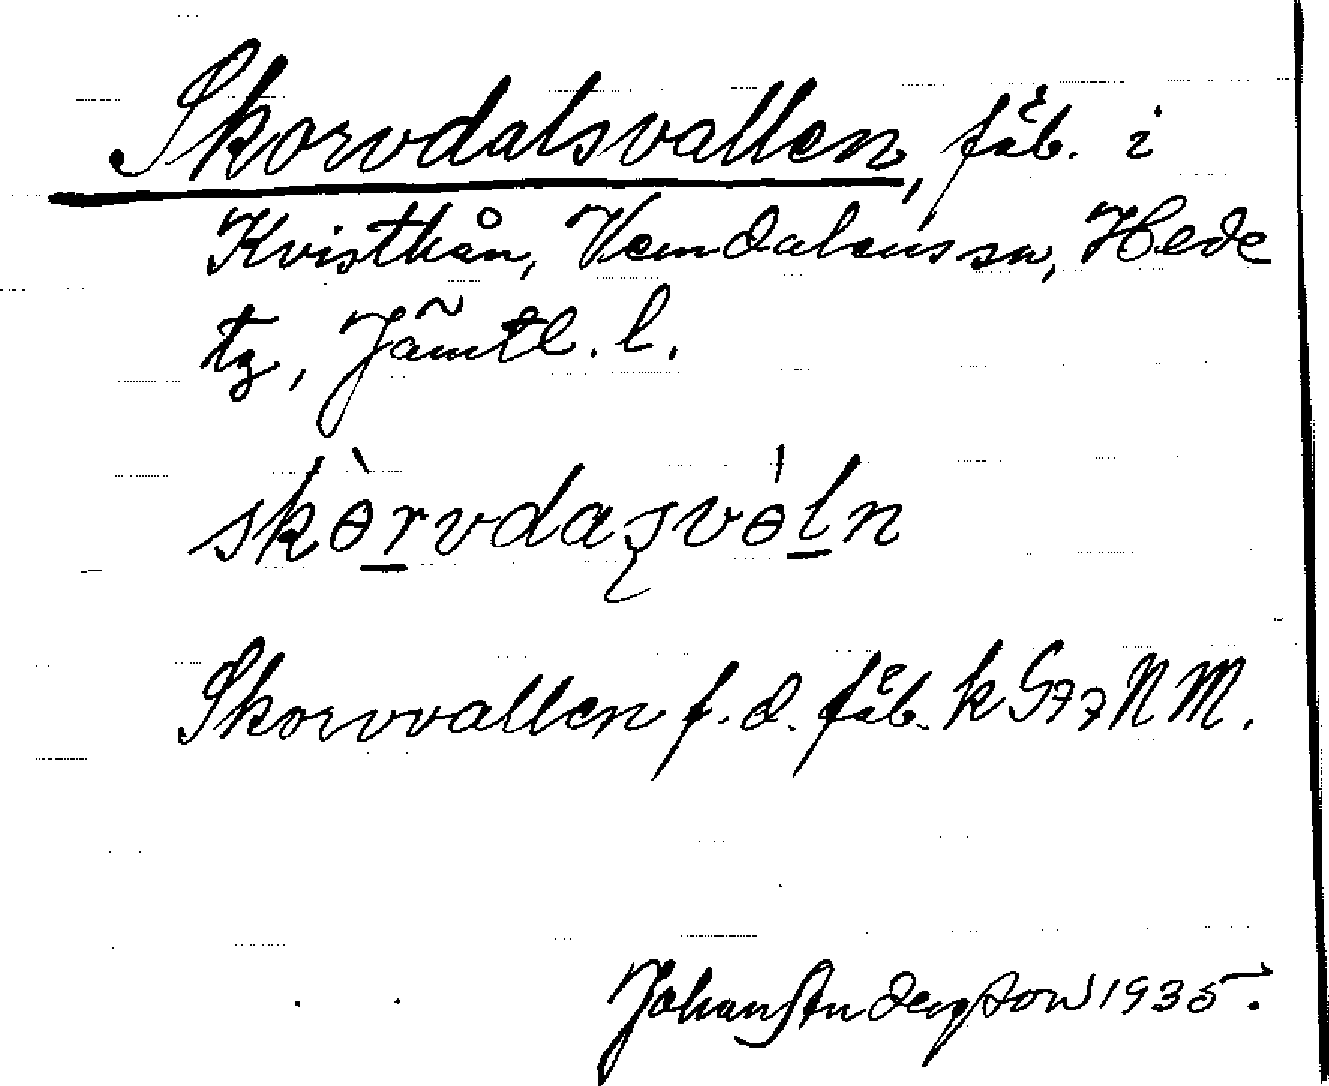 Skorvdalsvallen, fäb. i
Kvisthån, Vemdalens sn, Hede
tg, Jämtl. l.
skɵ̀rvdaʂvɵ́ln
Skorvvallen f. d. fäb. k G77NM.
Johan Andersson 1935.